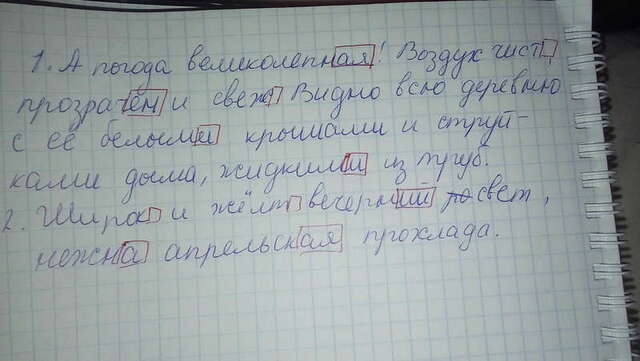 1. А погода великолепная! Воздух чист,
прозрачен и свеж. Видно всю деревню
с её белыми крышами и струй-
ками дыма, жидкими из труб.
2. Широк и жёлт вечерний свет,
нежна апрельская прохлада.